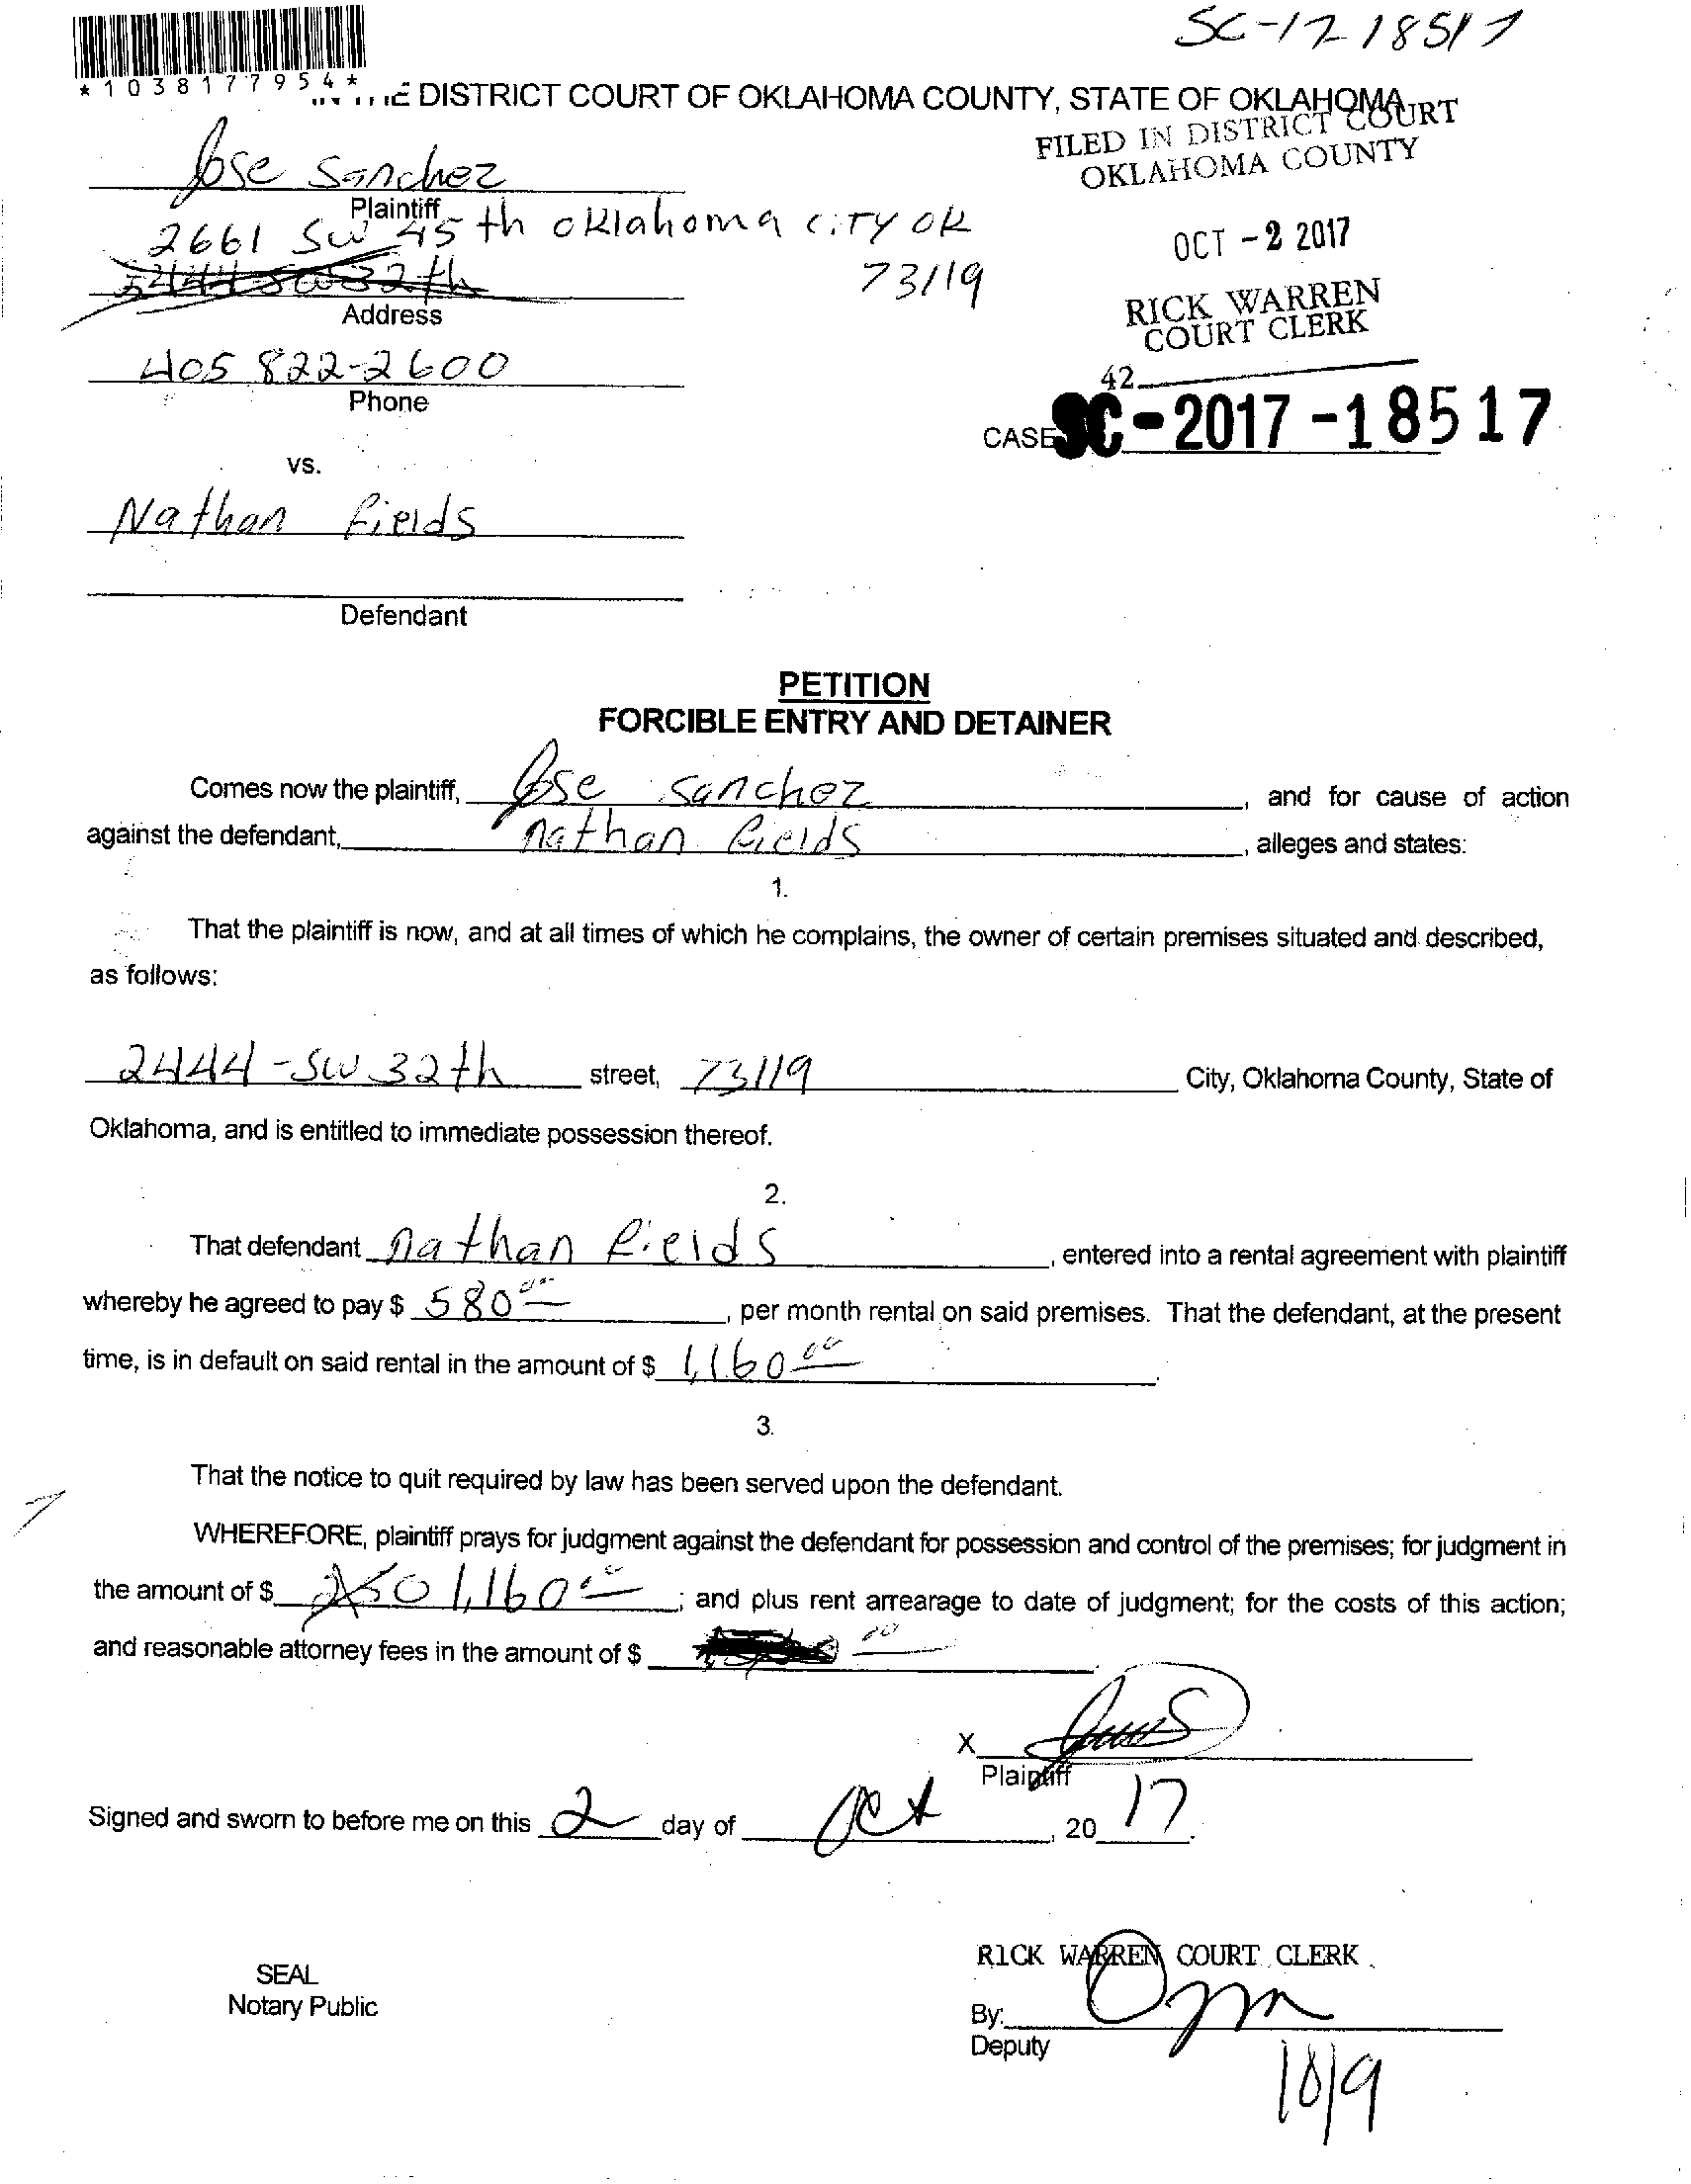 SC-17 18517
*1038177954*
THE DISTRICT COURT OF OKLAHOMA COUNTY, STATE OF OKLAHOMA
FILED IN DISTRICT COURT
OKLAHOMA COUNTY
Jose Sanchez
Plaintiff
2661 SW 45th oklahoma city OK
73119
OCT -2 2017
Address
RICK WARREN
COURT CLERK
405 822-2600
Phone
42
CASE SC-2017-18517
vs.
Nathan Fields
Defendant
PETITION
FORCIBLE ENTRY AND DETAINER
Comes now the plaintiff, Jose sanchez, and for cause of action
against the defendant, nathan Fields, alleges and states:
1.
That the plaintiff is now, and at all times of which he complains, the owner of certain premises situated and described,
as follows:
2444-SW 32th street, 73119 City, Oklahoma County, State of
Oklahoma, and is entitled to immediate possession thereof.
2.
That defendant nathan Fields, entered into a rental agreement with plaintiff
whereby he agreed to pay $ 580 00, per month rental on said premises. That the defendant, at the present
time, is in default on said rental in the amount of $ 1,160 00.
3.
That the notice to quit required by law has been served upon the defendant.
WHEREFORE, plaintiff prays for judgment against the defendant for possession and control of the premises; for judgment in
the amount of $ 1,160 00; and plus rent arrearage to date of judgment; for the costs of this action;
and reasonable attorney fees in the amount of $ 00
X
Plaintiff
Signed and sworn to before me on this 2 day of Oct, 20 17.
RICK WARREN COURT CLERK
SEAL
Notary Public
By:
Deputy
10/9